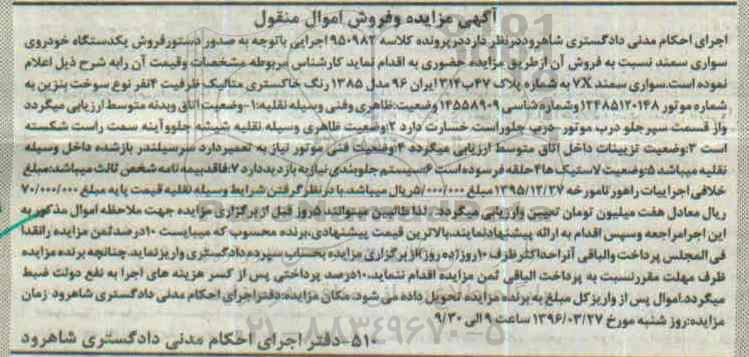 آگهی مزایده وفروش اموال منقول
اجرای احکام مدنی دادگستری شاهرود در نظر دارد در پرونده کلاسه ۹۵۰۹۸۲ اجرایی باتوجه به صدور دستور فروش یکدستگاه خودروی
سواری سمند نسبت به فروش آن از طریق مزایده حضوری به اقدام نماید کارشناس مربوطه مشخصات و قیمت آن را به شرح ذیل اعلام
نموده است. سواری سمند ۷X به شماره پلاک ۴۷ب۳۱۴ ایران ۹۶ مدل ۱۳۸۵ رنگ خاکستری متالیک ظرفیت ۴نفر نوع سوخت بنزین به
شماره موتور ۱۲۴۸۵۱۲۰۱۴۸ وشماره شناسی ۱۴۵۵۸۹۰۹ وضعیت:ظاهری وفنی وسیله نقلیه:۱-وضعیت اتاق وبدنه متوسط ارزیابی میگردد
واز قسمت سپر جلو درب موتور -درب جلوراست خسارت دارد ۲:وضعیت ظاهری وسیله نقلیه شیشه جلووآینه سمت راست شکسته
است ۳:وضعیت تزیینات داخل اتاق متوسط ارزیابی میگردد ۴:وضعیت فنی موتور نیاز به تعمیردارد سرسیلندر بازشده داخل وسیله
نقلیه میباشد ۵:وضعیت لاستیک ها۴ حلقه فرسوده است ۶:سیستم جلوبندی نیاز به بازدید دارد ۷:فاقدبیمه نامه شخص ثالث میباشد:مبلغ
خلافی اجراییات راهور تامورخه ۱۳۹۵/۱۲/۲۷ مبلغ ۵/۰۰۰/۰۰۰ریال میباشد.با در نظر گرفتن شرایط وسیله نقلیه قیمت پایه مبلغ ۷۰/۰۰۰/۰۰۰
ریال معادل هفت میلیون تومان تعیین وارزیابی میگردد. لذا طالبین میتوانند ۵روز قبل از برگزاری مزایده جهت ملاحظه اموال مذکور به
این اجرا مراجعه وسپس اقدام به ارائه پیشنهادنمایند،بالاترین قیمت پیشنهادی،برنده محسوب که میبایست ۱۰درصدثمن مزایده رانقدا
فی المجلس پرداخت والباقی آنراحداکثر ظرف ۱۰روز(ده روز)از برگزاری مزایده بحساب سپرده دادگستری واریز نماید.چنانچه برنده مزایده
ظرف مهلت مقرر نسبت به پرداخت الباقی ثمن مزایده اقدام ننماید،۱۰درصد پرداختی پس از کسر هزینه های اجرا به نفع دولت ضبط
میگردد.اموال پس از واریز کل مبلغ به برنده مزایده تحویل داده می شود.مکان مزایده:دفتر اجرای احکام مدنی دادگستری شاهرود -زمان
مزایده:روز شنبه مورخ ۱۳۹۶/۰۳/۲۷ ساعت ۹ الی ۹/۳۰
۵۱۰-دفتر اجرای احکام مدنی دادگستری شاهرود
۰۲۱-۸۸۳۴۹۶۷۰-۵